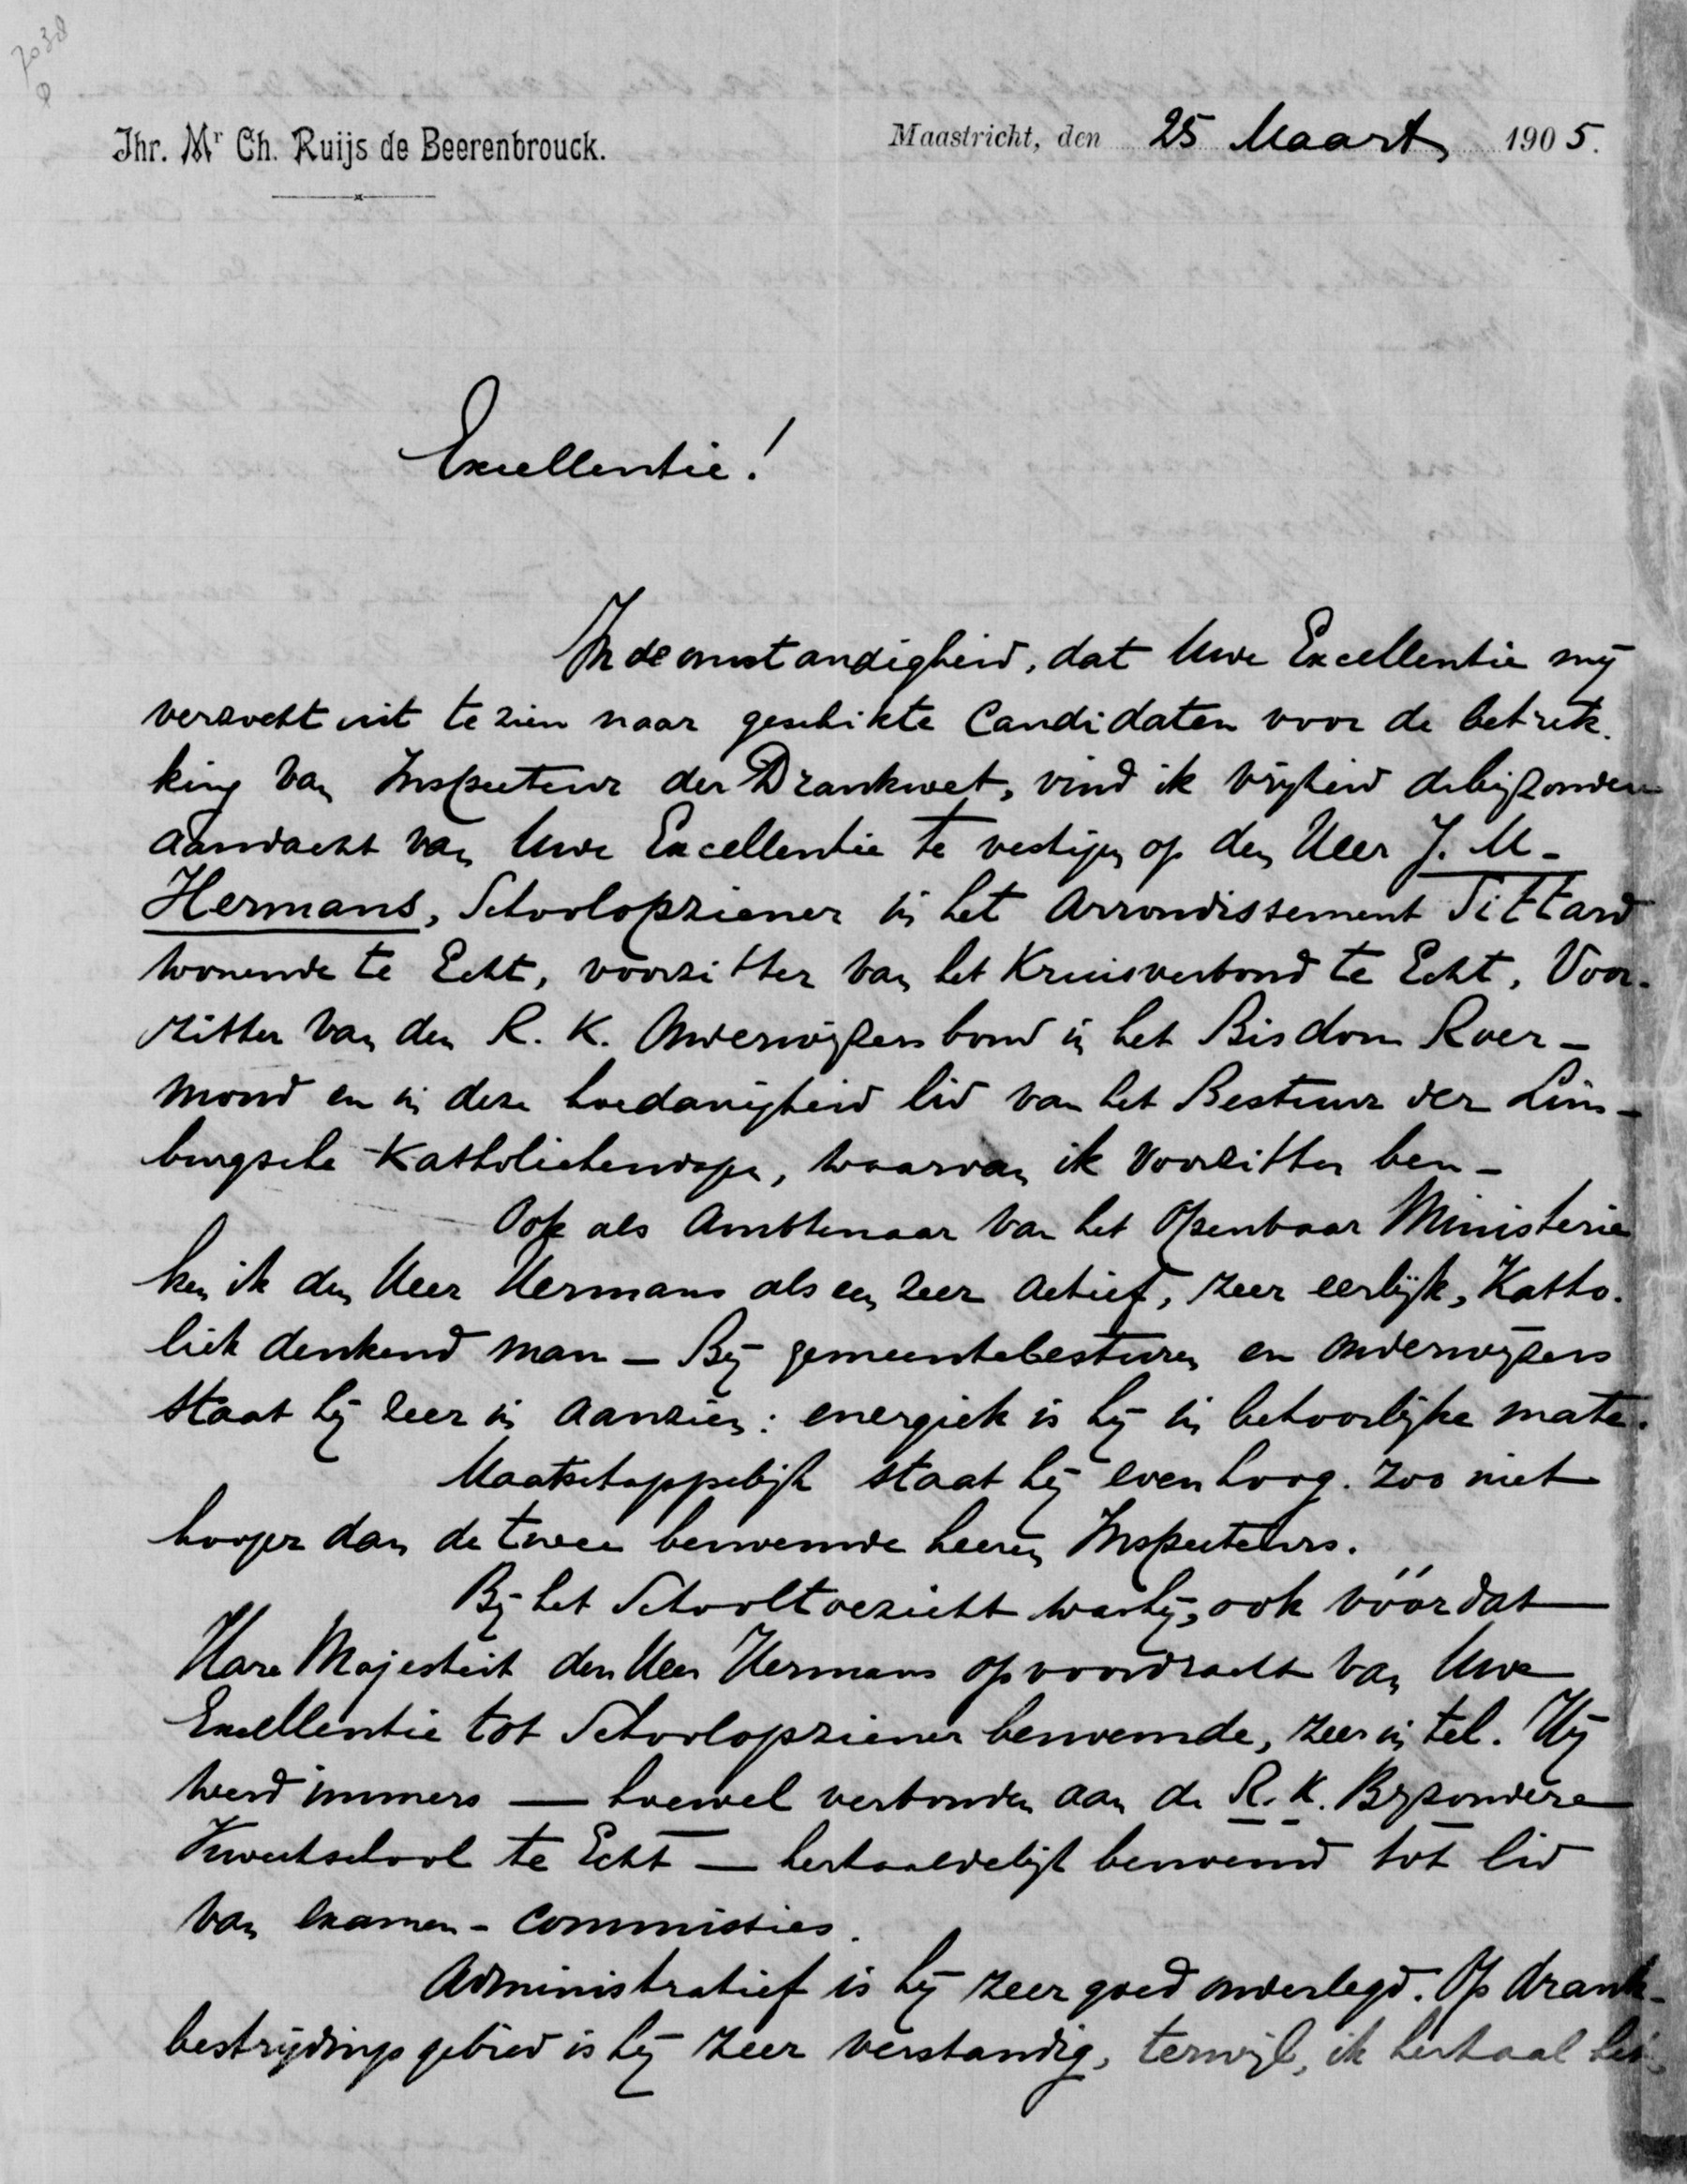 7038
Jhr. Mr Ch. Ruijs de Beerenbrouck.
Maastricht, den 25 Maart 1905.
Excellentie!
In de omstandigheid, dat Uwe Excellentie mij
verzocht uit te zien naar geschikte Candidaten voor de betrek-
king van Inspecteur der Drankwet, vind ik vrijheid de bijzondere
aandacht van Uwe Excellentie te vestigen op den Heer J. M.
Hermans, Schoolopziener in het Arrondissement Sittard
wonende te Echt, voorzitter van het Kruisverbond te Echt, Voor-
zitter van den R. K. Onderwijzersbond in het Bisdom Roer-
mond en in deze hoedanigheid lid van het Bestuur der Lim-
burgsche Katholiekendagen, waarvan ik Voorzitter ben -
Ook als Ambtenaar van het Openbaar Ministerie
ken ik den Heer Hermans als een zeer actief, zeer eerlijk, Katho-
liek denkend man - Bij gemeentebesturen en onderwijzers
staat hij zeer in aanzien: energiek is hij in behoorlijke mate.
Maatschappelijk staat hij even hoog. zoo niet
hooger dan de twee benoemde heeren Inspecteurs.
Bij het Schooltoezicht was hij, ook vóórdat
Hare Majesteit den Heer Hermans op voordracht van Uwe
Excellentie tot Schoolopziener benoemde, zeer in tel. Hij
werd immers — hoewel verbonden aan de R. K. Bijzondere
Kweekschool te Echt — herhaaldelijk benoemd tot lid
van examen-commissies.
Administratief is hij zeer goed onderlegd. Op drank-
bestrijdings gebied is hij zeer verstandig, terwijl, ik herhaal het,